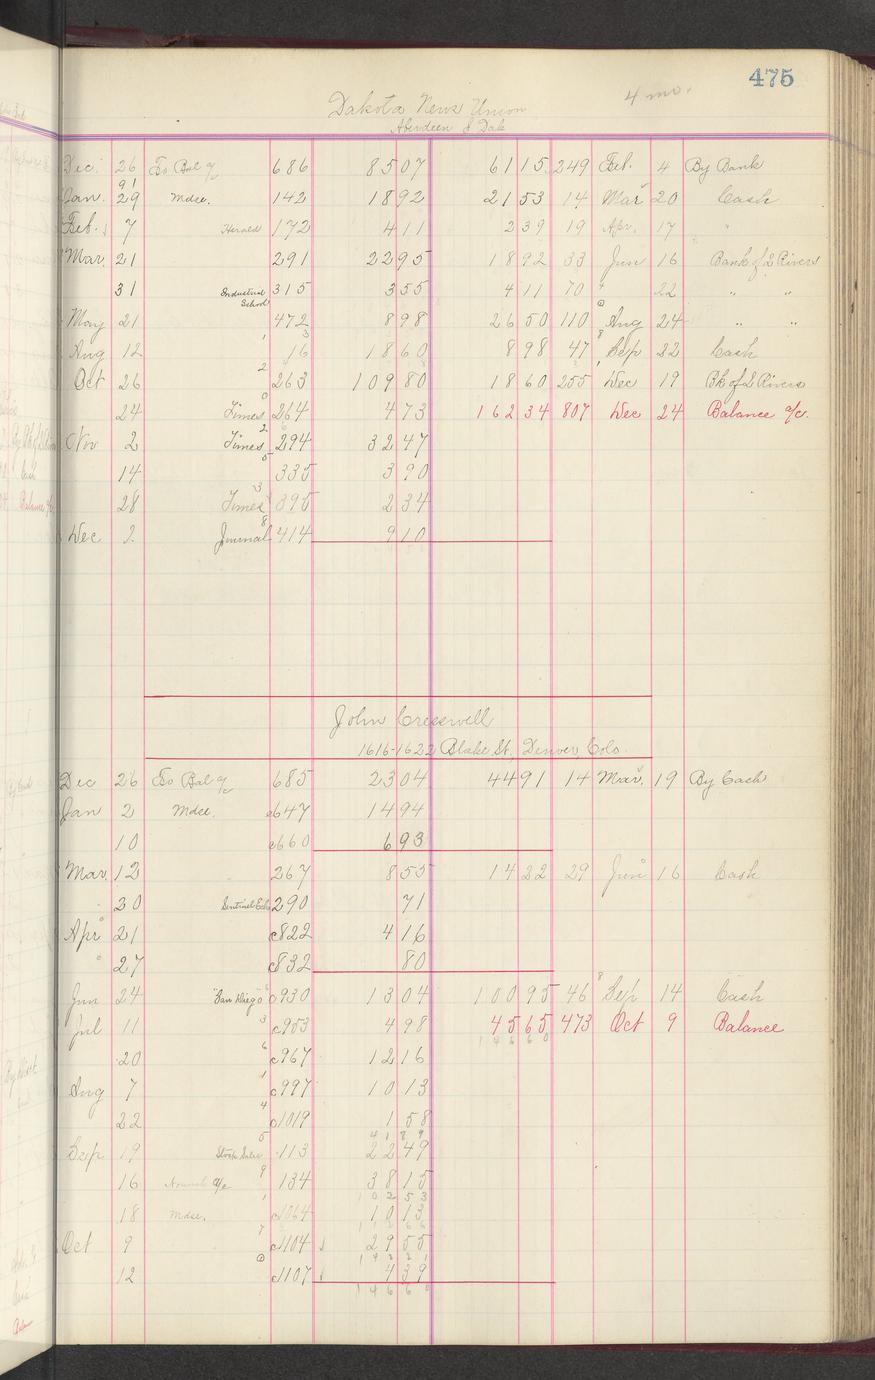 475
4 mo.
Dakota News Union
Aberdeen S Dak
Dec. 26 To Bal a/c 686 85 07 61 15 249 Feb. 4 By Bank
91
Jan. 29 Mdse. 142 18 92 21 53 14 Mar 20 Cash
Feb. 7 Herald 172 4 11 2 39 19 Apr. 17 "
Mar. 21 291 22 95 18 92 33 Jun 16 Bank of 2 Rivers
31 Industrial School 315 3 55 4 11 70 " 22 " "
May 21 472 8 98 26 50 110 Aug 24 " "
Aug 12 16 18 60 8 98 47 Sep 22 Cash
Oct 26 263 109 80 18 60 255 Dec 19 Bk of 2 Rivers
24 Times 264 4 73 162 34 807 Dec 24 Balance a/c.
Nov 2 Times 294 32 47
14 335 3 90
28 Times 395 2 34
Dec 2 Journal 414 9 10
John Cresswell
1616-1622 Blake St, Denver, Colo.
Dec 26 To Bal a/c 685 23 04 44 91 14 Mar. 19 By Cash
Jan 2 Mdse. c647 14 94
10 c660 6 93
Mar. 12 267 8 55 14 22 29 Jun 16 Cash
30 290 71
Apr 21 c822 4 16
27 c832 80
Jun 24 "San Diego" c930 13 04 100 95 46 Sep 14 Cash
Jul 11 c953 4 98 45 65 473 Oct 9 Balance
146 60
20 c967 12 16
Aug 7 c997 10 13
22 c1019 1 58
41 89
Sep 19 113 22 49
16 a/c 134 38 15
102 53
18 Mdse. c1064 10 13
112 66
Oct 9 c1104 29 55
142 21
12 c1107 4 39
146 60